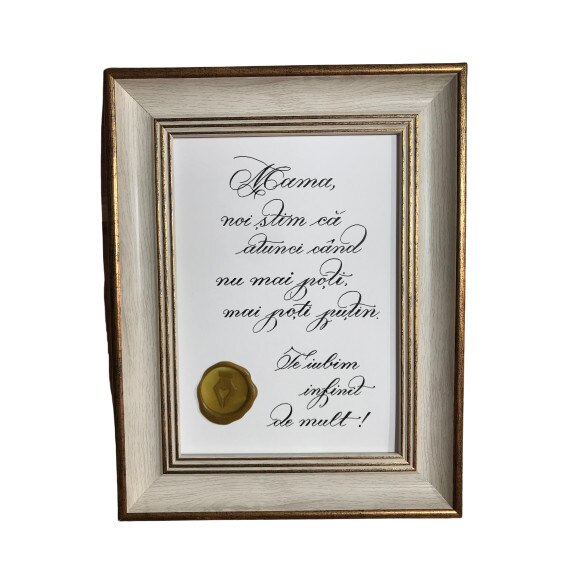 Mama,
noi știm că
atunci când
nu mai poți,
mai poți puțin.
Te iubim
infinit
de mult!